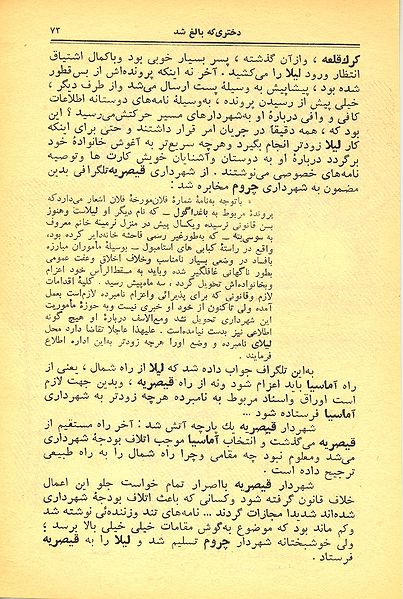 دختری‌که بالغ شد
۷۳
کرك‌قلعه ، وازآن گذشته ، پسر بسیار خوبی بود وباکمال اشتیاق
انتظار ورود لیلا را می‌کشید . آخر نه اینکه پرونده‌اش از بس‌قطور
شده بود ، پیشاپیش به وسیلهٔ پست ارسال می‌شد واز طرف دیگر ،
خیلی پیش از رسیدن پرونده ، به‌وسیلهٔ نامه‌های دوستانه اطلاعات
کافی و وافی دربارهٔ او به‌شهردارهای مسیر حرکتش‌می‌رسید ؟ این
بود که ، همه دقیقاً در جریان امر قرار داشتند و حتی برای اینکه
کار لیلا زودتر انجام بگیرد وهرچه سریع‌تر به آغوش خانوادهٔ خود
برگردد دربارهٔ او به دوستان وآشنایان خویش کارت ها وتوصیه
نامه‌های خصوصی می‌نوشتند . از شهرداری قیصریه‌تلگرافی بدین
مضمون به شهرداری چروم مخابره شد :
« باتوجه به‌نامهٔ شمارهٔ فلان‌مورخهٔ فلان اشعار می‌داردکه
پروندهٔ مربوط به باغداگول ـ که نام دیگر او لیلاست وهنوز
بسن قانونی نرسیده ویکسال پیش در منزل ترمینه خانم معروف
به سوسی‌پته ـ که به‌طورغیر رسمی فاحشه خانه‌دایر کرده بود،
واقع در راستهٔ کبابی های استامبول ـ بوسیلهٔ مأموران مبارزه
بافساد در وضعی بسیار نامناسب وخلاف اخلاق وعفت عمومی
بطور ناگهانی غافلگیر شده وباید به مسقط‌الرأس خود اعزام
وبخانواده‌اش تحویل گردد ، سه ماه‌پیش رسید . کلیهٔ اقدامات
لازم وقانونی که برای پذیرائی واعزام نامبرده لازم‌است بعمل
آمده ولی تاکنون از خود او خبری نیست وبه حوزهٔ مأموریت
این شهرداری تحویل نشد ومع‌الاسف دربارهٔ او هیچ گونه
اطلاعی نیز بدست نیامده‌است . علیهذا عاجلا تقاضا دارد محل
لیلای نامبرده و وضع اورا هرچه زودتر به‌این اداره اطلاع
فرمایند .
به‌این تلگراف جواب داده شد که لیلا از راه شمال ، یعنی از
راه آماسیا باید اعزام شود ونه از راه قیصریه ، وبدین جهت لازم
است اوراق واسناد مربوط به نامبرده هرچه زودتر به شهرداری
آماسیا فرستاده شود ...
شهردار قیصریه یك پارچه آتش شد : آخر راه مستقیم از
قیصریه می‌گذشت و انتخاب آماسیا موجب اتلاف بودجهٔ شهرداری
می‌شد ومعلوم نبود چه مقامی وچرا راه شمال را به راه طبیعی
ترجیح داده است .
شهردار قیصریه بااصرار تمام خواست جلو این اعمال
خلاف قانون گرفته شود وکسانی که باعث اتلاف بودجهٔ شهرداری
شده‌اند شدیداً مجازات گردند ... نامه‌های تند وزننده‌ئی نوشته شد
وکم ماند بود که موضوع به‌گوش مقامات خیلی خیلی بالا برسد ؛
ولی خوشبختانه شهردار چروم تسلیم شد و لیلا را به قیصریه
فرستاد .